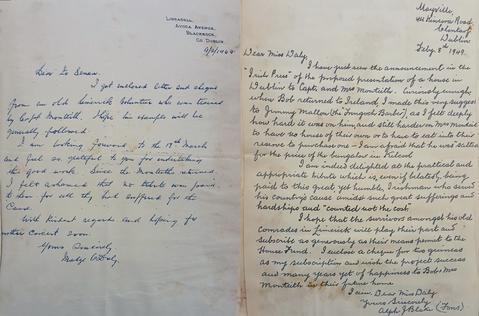 LISNAGELL,
AVOCA AVENUE,
BLACKROCK,
CO. DUBLIN
Dear Senan
I got enclosed letter and cheque
from an old Limerick Volunteer who was trained
by Capt Monteith. Hope his example will be
generally followed.
I am looking forward to the 17th March
and feel so grateful to you for undertaking
this good work. Since the Monteiths returned
I felt ashamed that no tribute was paid
to them for all they had suffered for the
Cause.
With kindest regards and hoping for
another Concert soon
Yours Sincerely
Madge Daly.
Mayville,
Kincora Road,
Clontarf,
Dublin.
Feby. 8th 1949.
Dear Miss Daly,
I have just seen the announcement in the
"Irish Press" of the proposed presentation of a house in
Dublin to Capt. and Mrs Monteith. Curiously enough
when Bob returned to Ireland, I made this very suggestion
to Jimmy Mallon (the Fingal's Barber), as I felt deeply
how hard it was on him, and still harder on Mrs Monteith
to have no house of their own or to have to eat into their
reserve to purchase one - I am afraid that he was
for the price of the bungalow in Kilcool.
I am indeed delighted at the practical and
appropriate tribute which is, even if belatedly, being
paid to this great yet humble Irishman who served
his country's cause amidst such great sufferings and
hardships and "counted not the cost".
I hope that the survivors amongst his old
Comrades in Limerick will play their part and
subscribe as generously as their means permit to the
House Fund. I enclose a cheque for two guineas
as my subscription and wish the project success
and many years yet of happiness to Bob & Mrs
Monteith in their future home.
I am, Dear Miss Daly
Yours Sincerely
Alph J Blake (Fons)